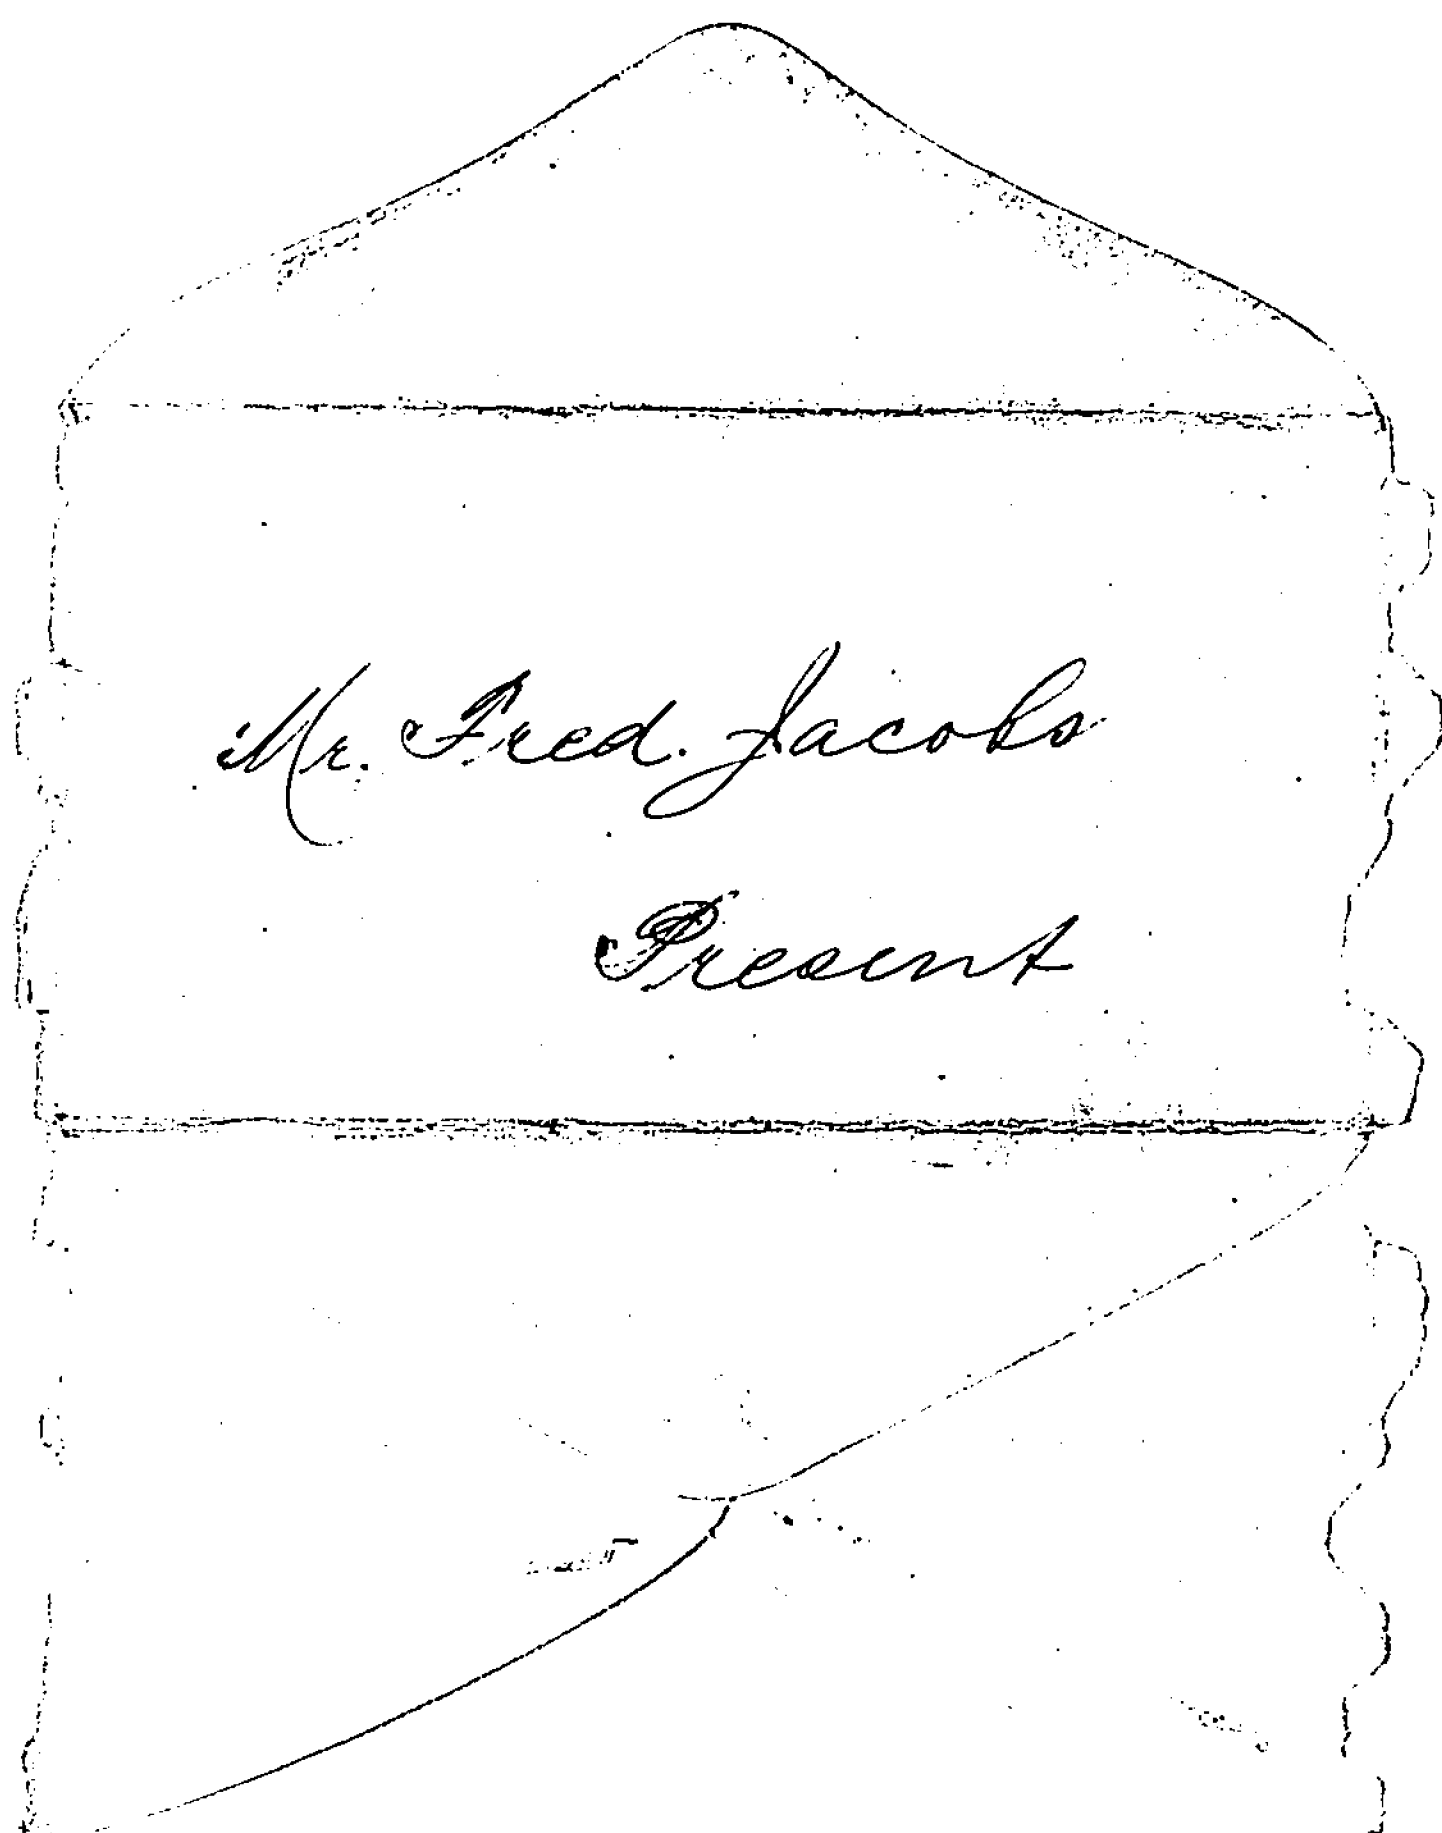 Mr. Fred. Jacobs
Present